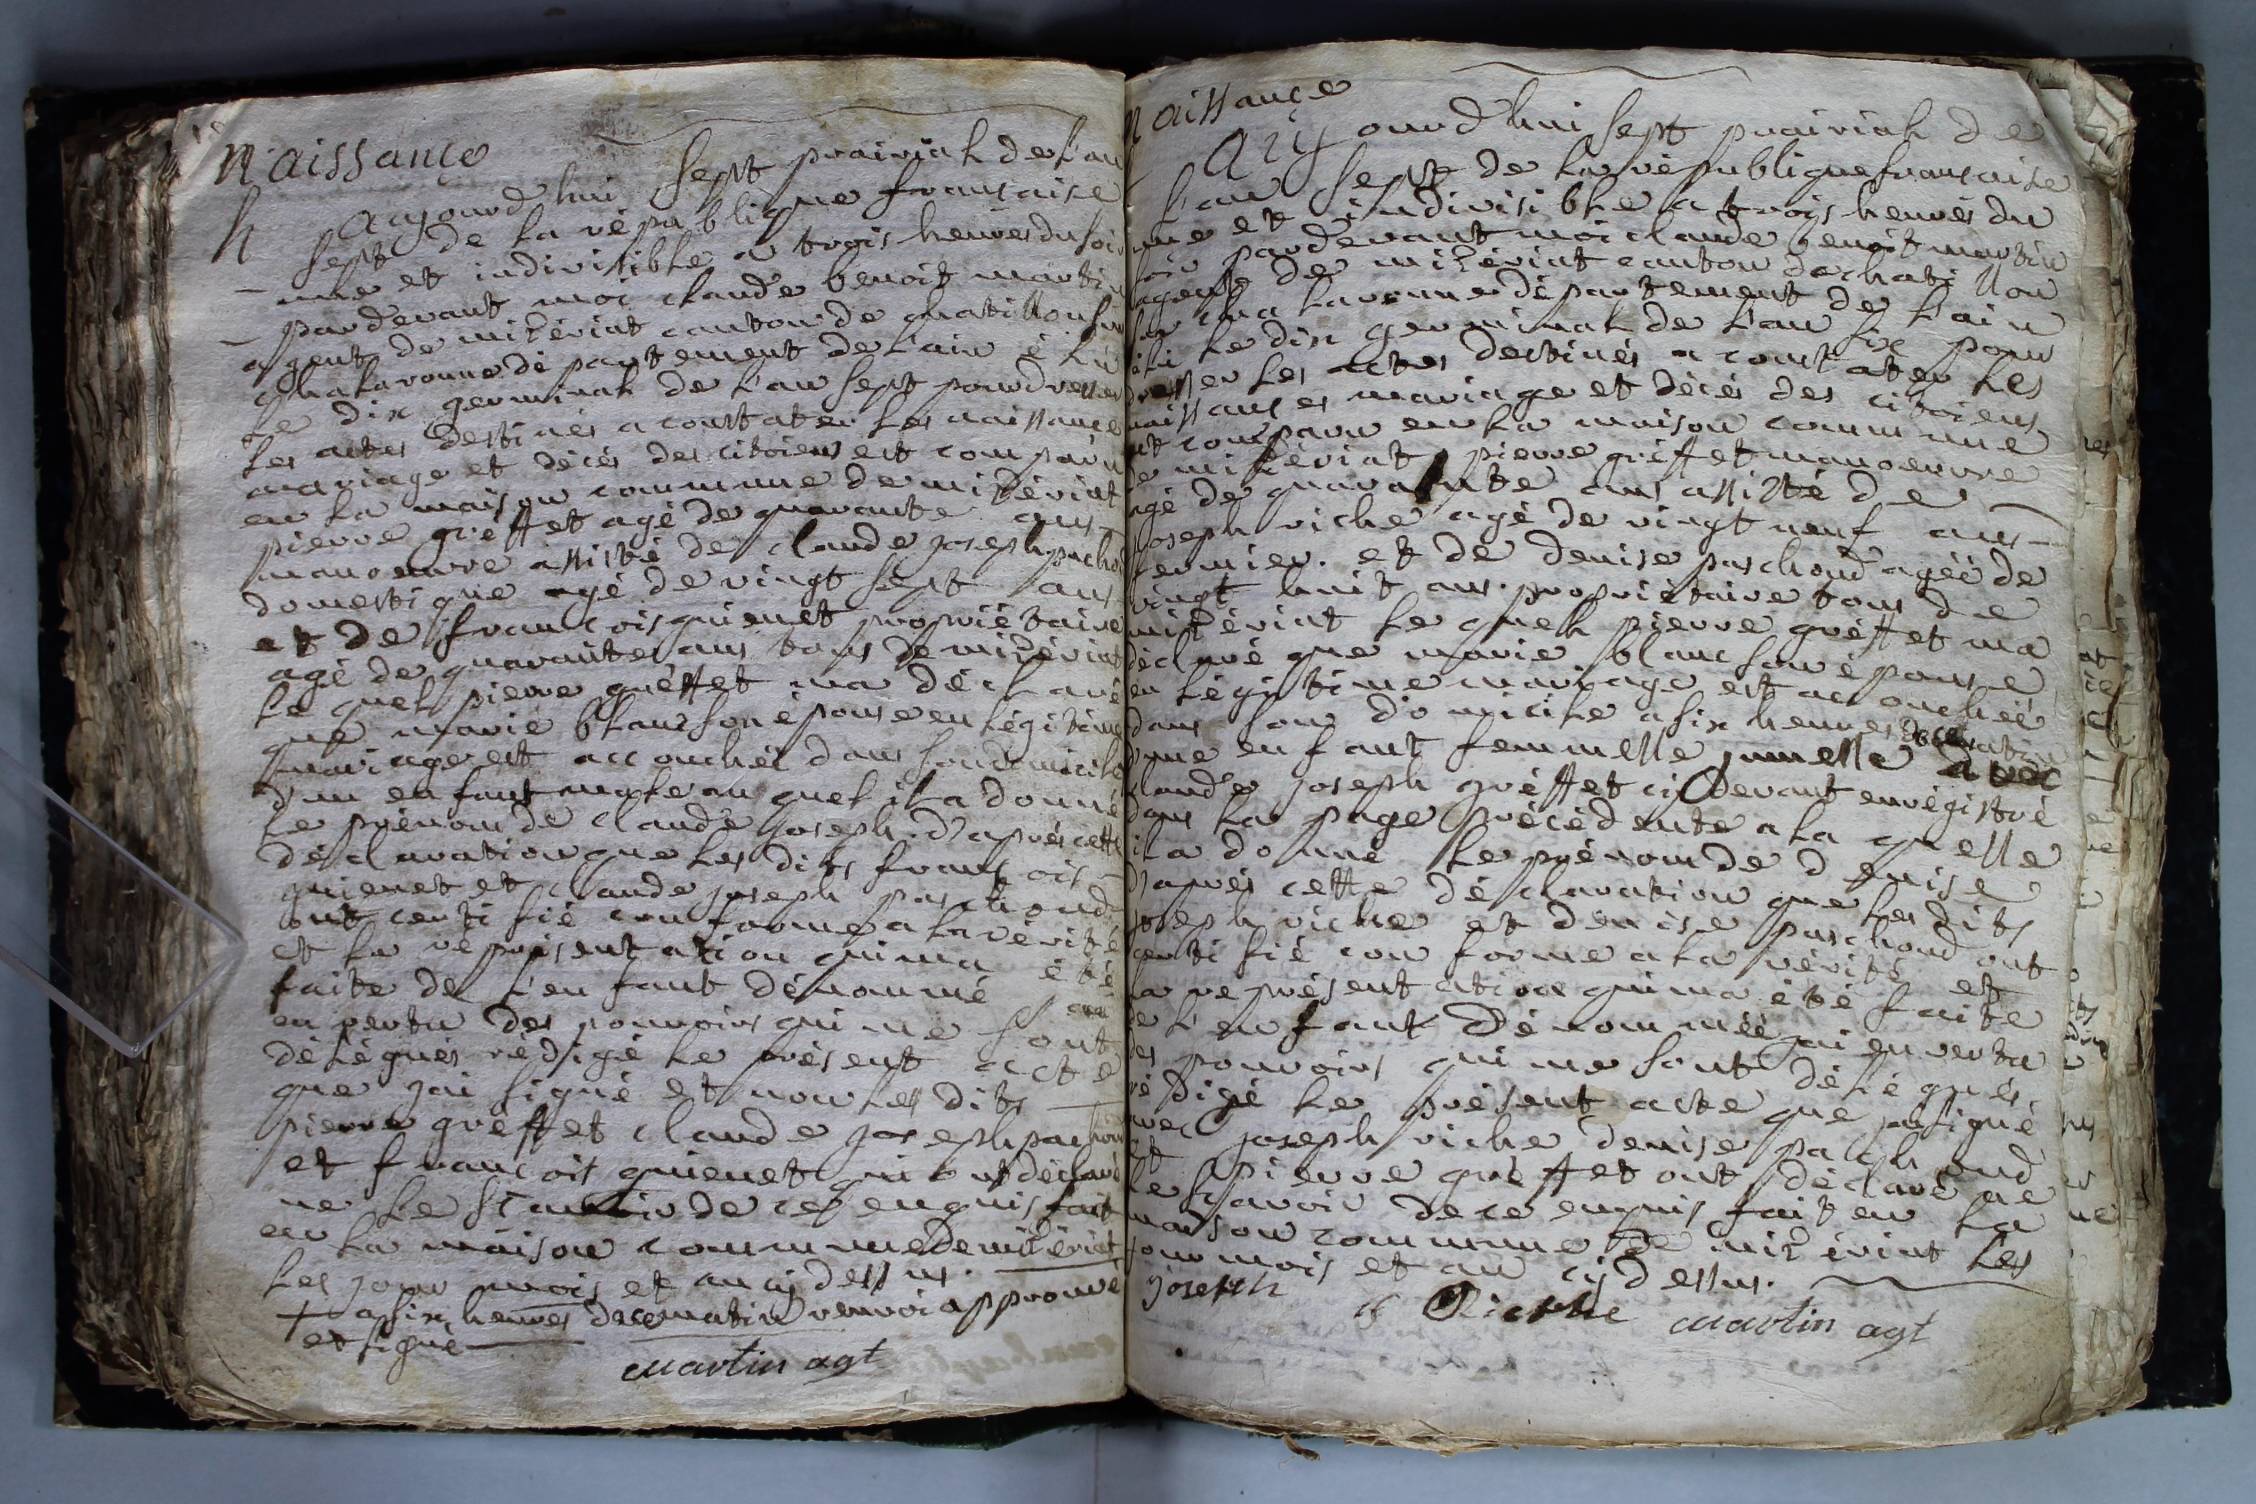 naissançe
h
aujourd'hui sept prairial de l'an
sept de la république fransaise
une et indivisible a trois heures du soir
pardevant moi claude benoit martin
agent de mizériat canton de chatillon sur
chalaronne département de l'ain élu
le dix germinal de l'an sept pour dresser
les actes destinés a constater les naissances
mariage et décés des citoiens est comparu
en la maison commune de mizériat
pierre gréffet agé de quarante ans
manoeuvre assisté de claude joseph pachou
domestique agé de vingt sept ans
et de francois guienet propriétaire
agé de quarante ans tous de mizériat
le quel pierre gréffet ma déclaré
que marie blanc son épouse en légitime
mariage est accouchée dans son domicile
d'un enfant male au quel il a donné
le prénom de claude joseph d'aprés cette
déclaration que les dits francois
guienet et claude joseph paschoud
ont certifié conforme a la vérité
et la représentation qui ma été
faite de l'enfant dénommé
en vertu des pouvoirs qui me sont
délégués rédigé le présent acte
que jai signé et non les dits
pierre gréffet claude joseph pachoud
et francois guienet qui ont déclaré
ne le scavoir de ce enquis fait
en la maison commune de mizériat
les jour mois et an cij dessus.
+ a six heures de ce matin renvoi approuvé
et signé
Martin agt
naissançe
aujourd'hui sept prairial de
l'an sept de la république francaise
une et indivisible a trois heures du
soir pardevant moi claude benoit martin
agent de mizériat canton de chatillon
sur chalaronne département de l'ain
élu le dix germinal de l'an six pour
dresser les actes destinés a constater les
naissances mariage et décés des citoiens
est comparu en la maison commune
de mizériat pierre gréffet manoeuvre
agé de quarante ans assisté de
joseph riche agé de vingt neuf ans
fermier. et de denise paschoud agéé de
vingt huit ans. propriétaire tous de
mizériat le quel pierre gréffet ma
déclaré que marie blanc son épouse
en légitime mariage est accouchéé
dans son domicile a six heures de ce matin
d'une enfant femmelle jumelle avec
claude joseph gréffet cij devant enrégistré
dans la page précédente a la quelle
il a donné le prénom de denise
d'aprés cette déclaration que les dits
joseph riche et denise paschoud ont
certifié conforme a la vérité et
la représentation qui ma été faite
de l'enfant dénomméé jai en vertu
des pouvoirs qui me sont délégués
rédigé le présent acte que jai signé
avec joseph riche denise pachoud
et pierre gréffet ont déclaré ne
le scavoir de ce enquis fait en la
maison commune de mizériat les
jour mois et an cij dessus.
joseph Riche Martin agt